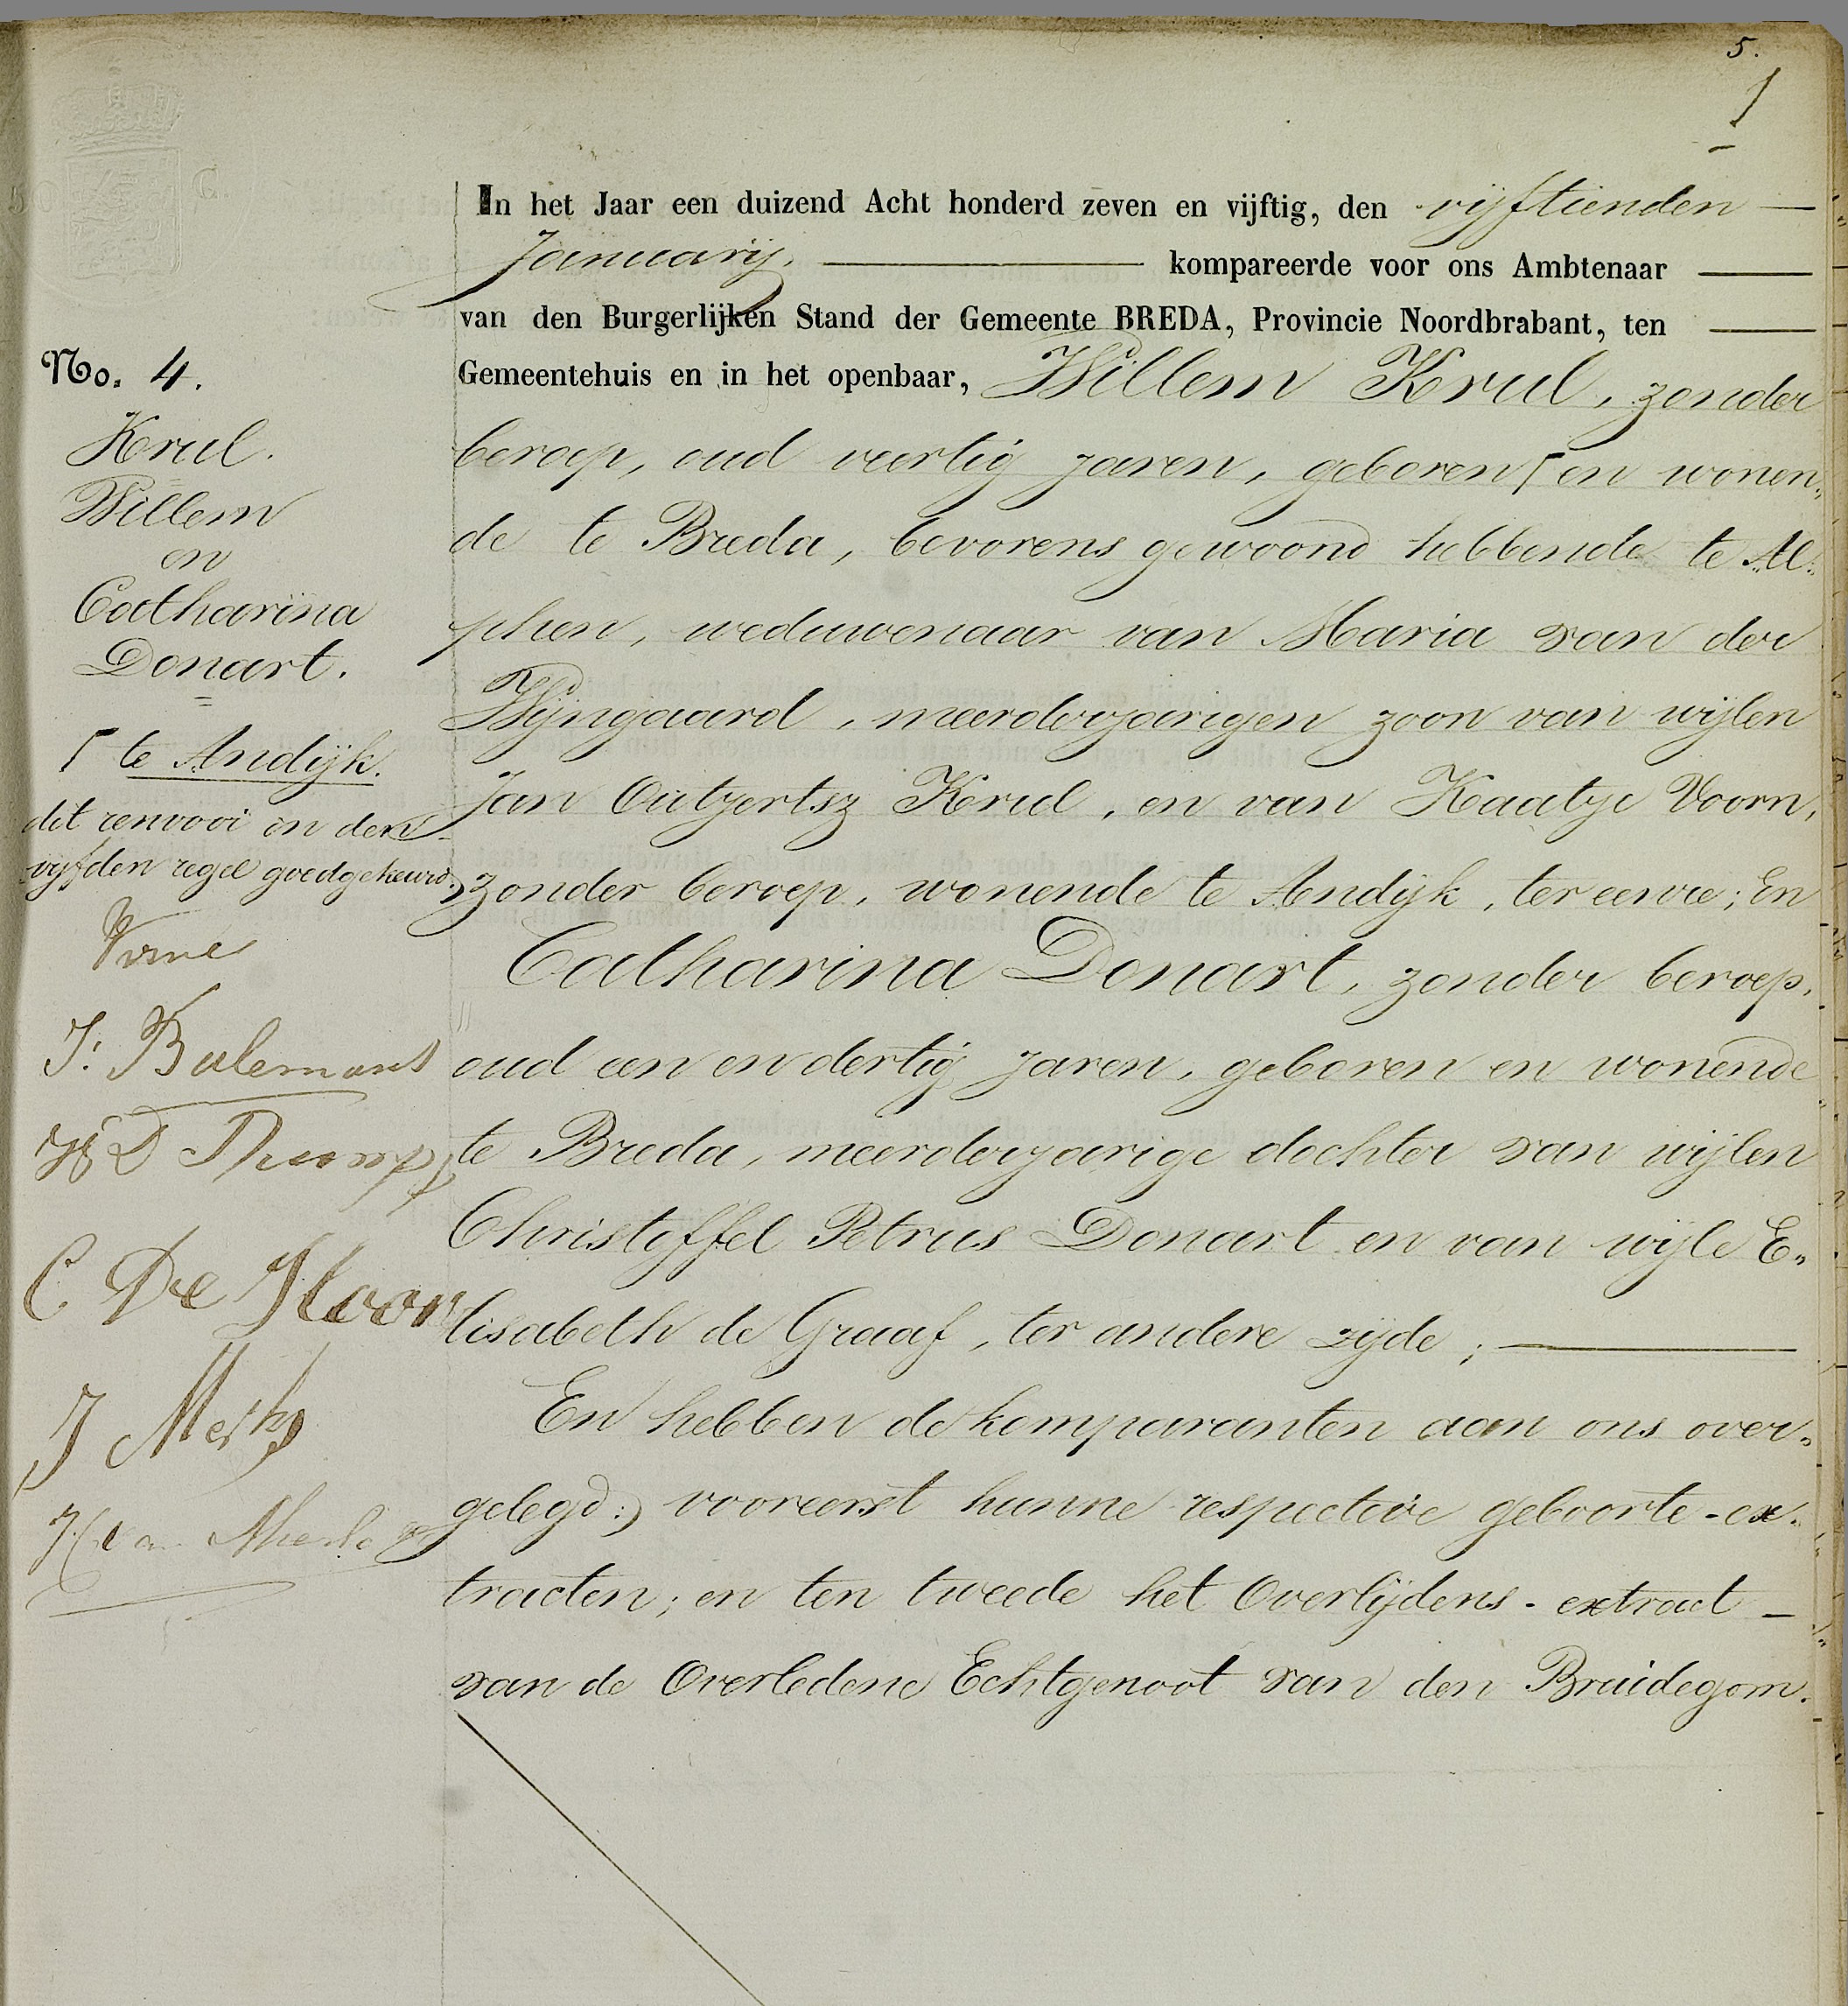 5.
In het Jaar een duizend Acht honderd zeven en vijftig, den vijftienden —
Januarij. — kompareerde voor ons Ambtenaar —
van den Burgerlijken Stand der Gemeente BREDA, Provincie Noordbrabant, ten —
Gemeentehuis en in het openbaar, Willem Krul, zonder
beroep, oud veertig jaren, geboren ⌈ en wonen„
de te Breda, bevorens gewoond hebbende te Al„
phen, weduwenaar van Maria van der
Wijngaard, meerderjarigen zoon van wijlen
Jan Outgertsz Krul, en van Kaatje Voorn,
zonder beroep, wonende te Andijk, ter eenre; En
Catharina Donart, zonder beroep,
oud een en dertig jaren, geboren en wonende
te Breda, meerderjarige dochter van wijlen
Christoffel Petrus Donart en van wijle E„
lisabeth de Graaf, ter andere zijde; —
En hebben de komparanten aan ons over„
gelegd:, vooreerst hunne respective geboorte-ex„
tracten; en ten tweede het Overlijdens-extract —
van de Overledene Echtgenoot van den Bruidegom.
No. 4.
Krul.
Willem
en
Catharina
Donart.
⌈ te Andijk.
dit renvooi in den
vijfden regel goedgekeurd.
J: Bulemans
C De Hoor
J Merks